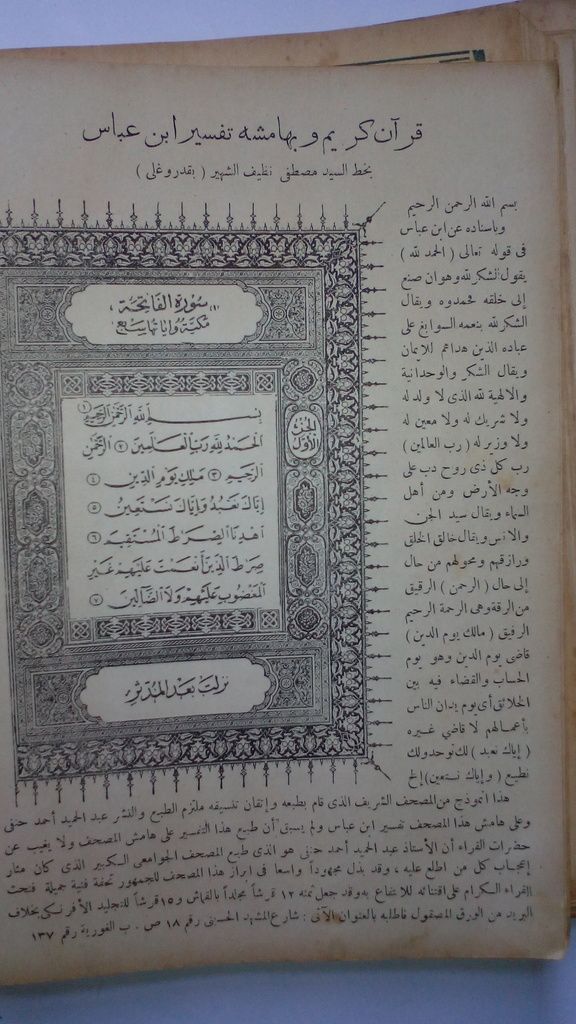 قرآن كريم وبهامشه تفسير ابن عباس
بخط السيد مصطفى نظيف الشهير ( بقدروغلى )
بسم الله الرحمن الرحيم
وباسناده عن ابن عباس
فى قوله تعالى ( الحمد لله )
يقول الشكر لله وهو ان صنع
إلى خلقه فحمدوه ويقال
الشكر لله بنعمه السوابغ على
عباده الذين هداهم للايمان
ويقال الشكر والوحدانية
والالهية لله الذى لا ولد له
ولا شريك له ولا معين له
ولا وزير له ( رب العالمين )
رب كل ذى روح دب على
وجه الأرض ومن أهل
السماء ويقال سيد الجن
والانس ويقال خالق الخلق
ورازقهم ومحولهم من حال
إلى حال ( الرحمن ) الرقيق
من الرقة وهى الرحمة الرحيم
الرفيق ( مالك يوم الدين )
قاضى يوم الدين وهو يوم
الحساب والقضاء فيه بين
الخلائق أى يوم يدان الناس
بأعمالهم لا قاضي غيره
( إياك نعبد ) لك نوحد ولك
نطيع ( وإياك نستعين ) إلخ
سورة الفاتحة
مكية وآياتها سبع
الجزء
الأول
بسم الله الرحمن الرحيم ١
الحمد لله رب العالمين ٢ الرحمن
الرحيم ٣ ملك يوم الدين ٤
إياك نعبد وإياك نستعين ٥
اهدنا الصراط المستقيم ٦
صراط الذين أنعمت عليهم غير
المغضوب عليهم ولا الضالين ٧
نزلت بعد المدثر
هذا انموذج من المصحف الشريف الذى قام بطبعه وإتقان تنسيقه ملتزم الطبع والنشر عبد الحميد أحمد حنفى
وعلى هامش هذا المصحف تفسير ابن عباس ولم يسبق أن طبع هذا التفسير على هامش المصحف ولا يغيب عن
حضرات القراء أن الأستاذ عبد الحميد أحمد حنفى هو الذى طبع المصحف الجوامعى الكبير الذى كان مثار
إعجاب كل من اطلع عليه ، وقد بذل مجهوداً واسعا فى ابراز هذا المصحف للجمهور تحفة فنية جميلة فنحث
القراء الكرام على اقتنائه للانتفاع به وقد جعل ثمنه ١٢ قرشاً مجلداً بالقماش و١٥ قرشاً للتجليد الأفرنكى بخلاف
البريد من الورق المصقول فاطلبه بالعنوان الآتى : شارع المشهد الحسينى رقم ١٨ ص . ب الغورية رقم ١٣٧